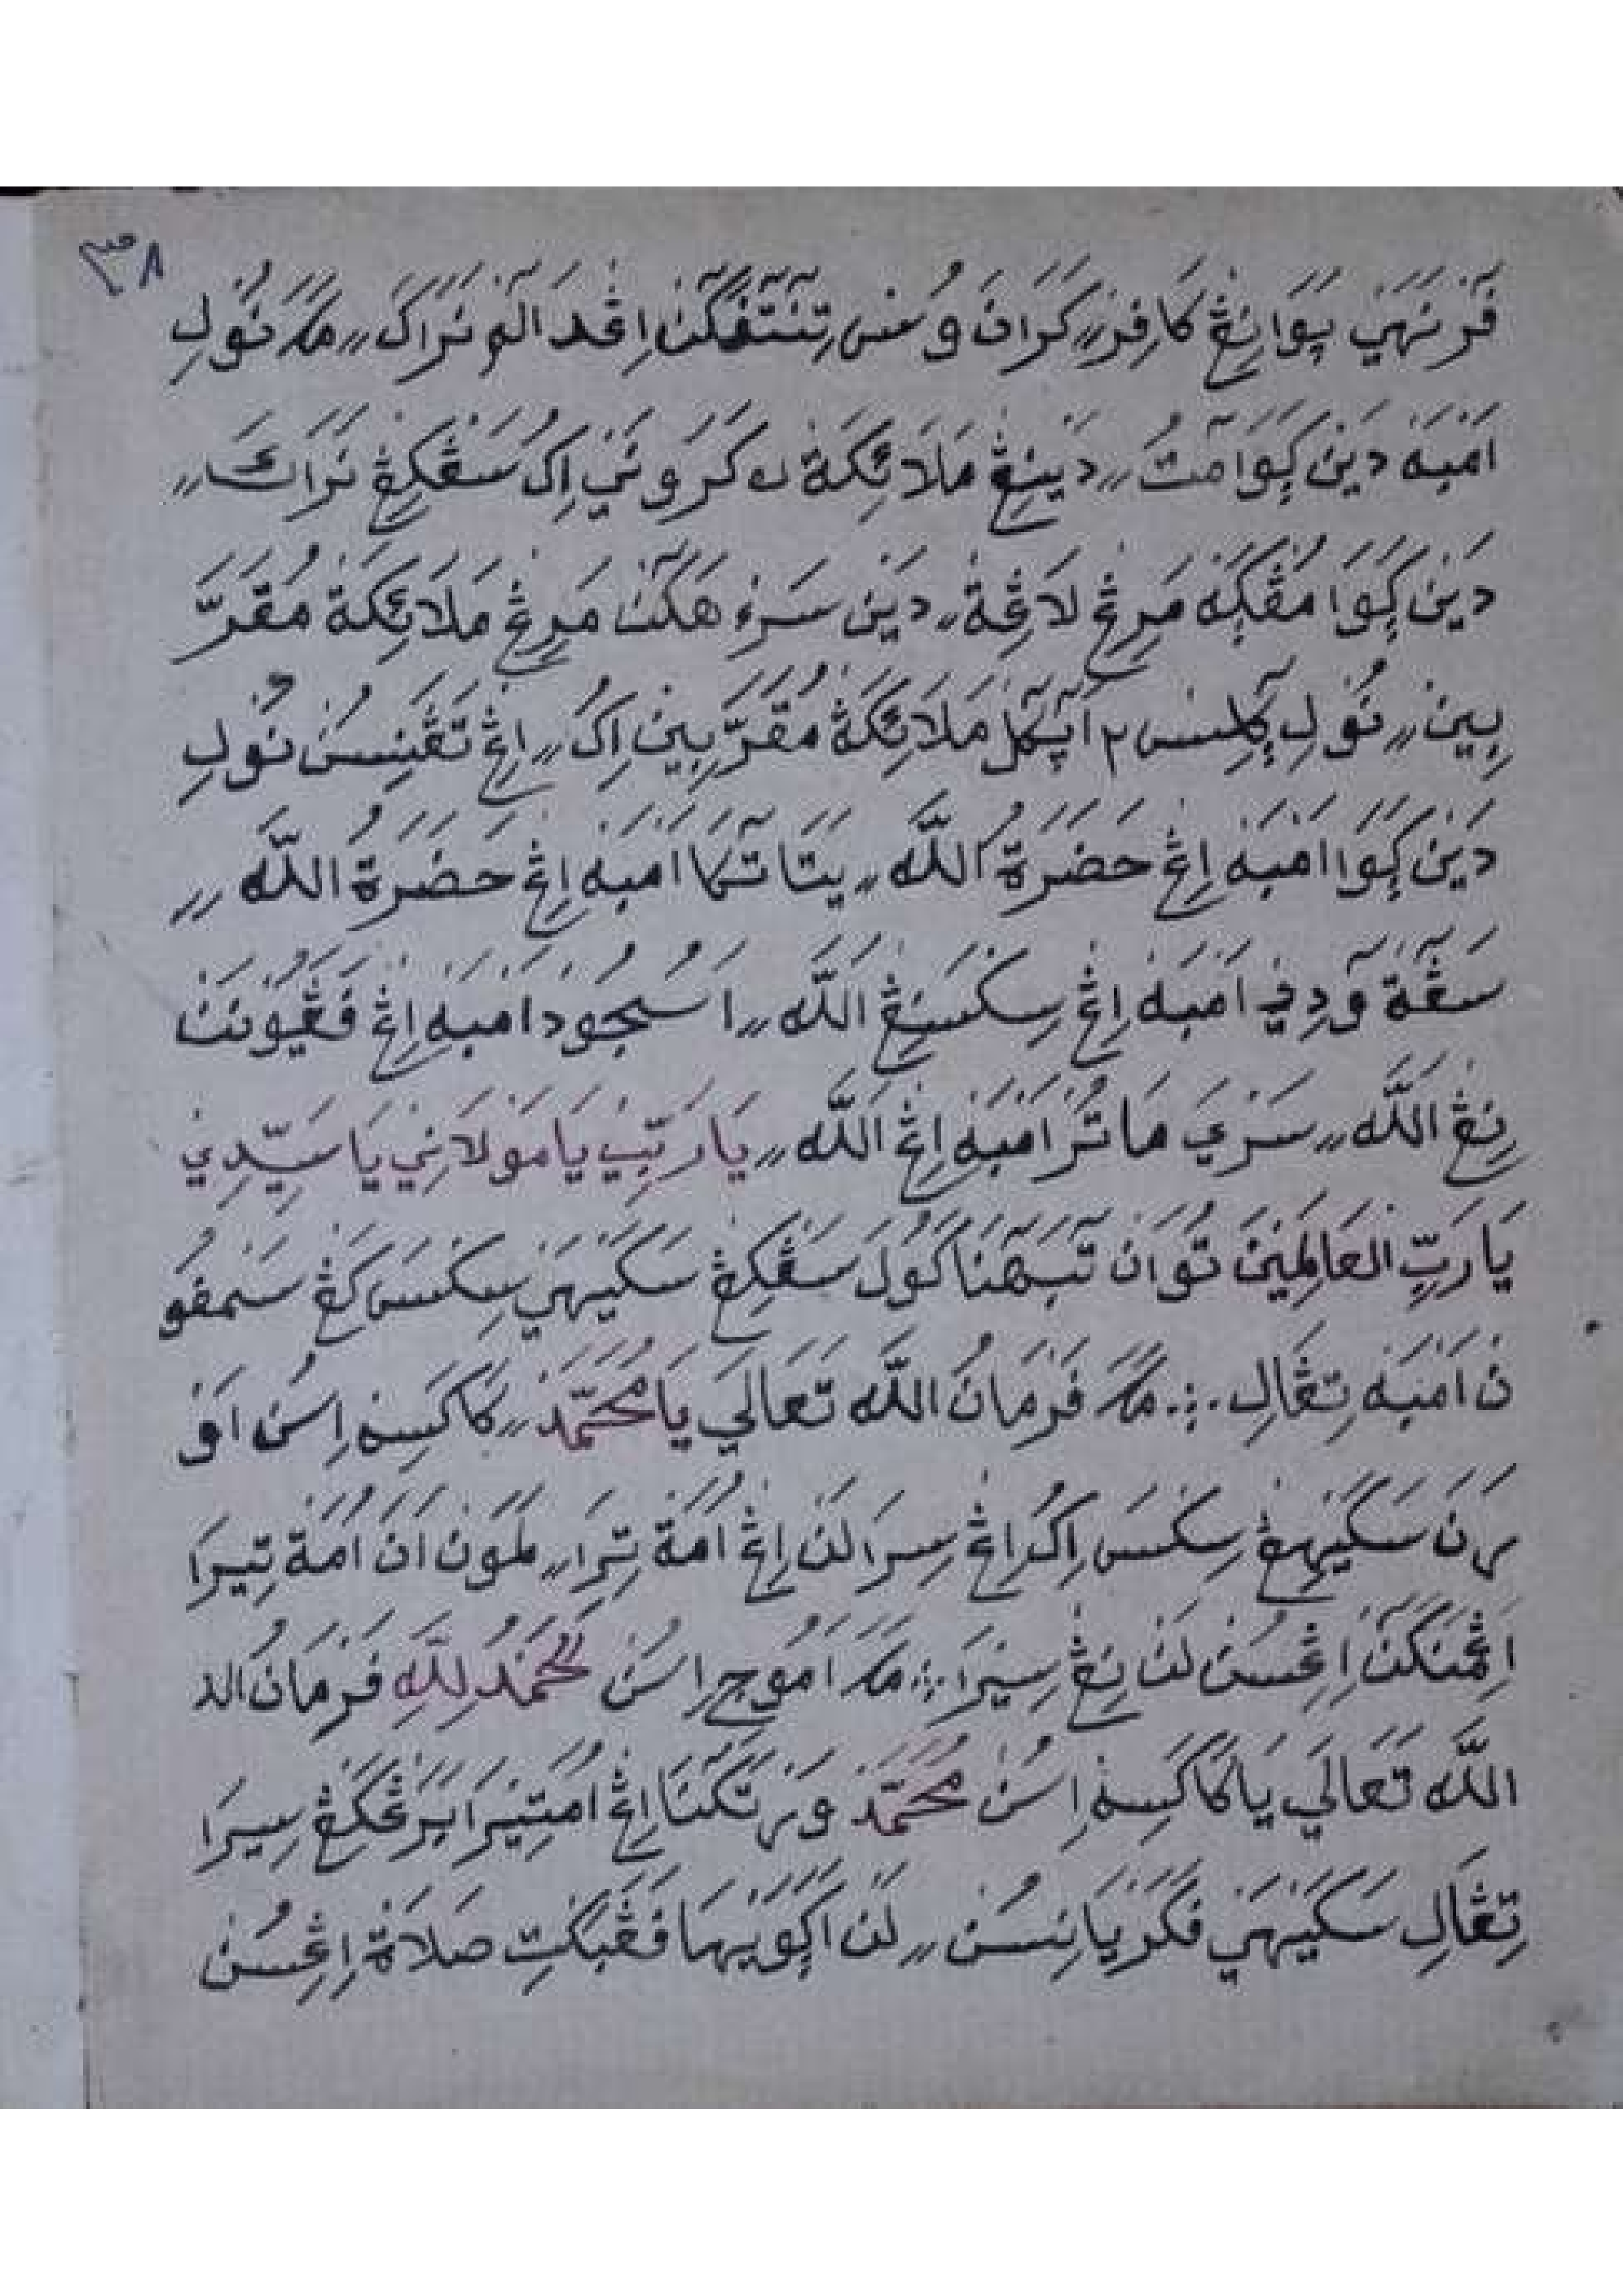 ٣٨
فَرْنَهَيْ ڽَوَانِڠْ كَافِرْ؍؍ كَرَانَ وُسْ تِنٓتٓفْكٓنْ اِڠْدَالٓمْ نَرَاكَ؍؍ مَكَ نُوْلِ
اَمْبَهْ دَيْنْ بٓݢَوَا مٓتُ؍؍ دَيْنِڠْ مَلَائِكَةْ كَرَوْنَيْ اِكُ سُڠْكِڠْ نَرَاكَ؍؍
دَيْنْ بٓݢَوَا مُڠْݢَهْ مَرِڠْ لَاڠِةْ؍؍ دَيْنْ سَرَهْ هَكٓنْ مَرِڠْ مَلَائِكَةْ مُقَرَّ
بِيْنْ؍؍ نُوْلِ مَلَائِكَةْ مُقَرَّبِيْنْ اِكُ؍؍ اِڠْ تَڠَنِسُنْ نُوْلِ
دَيْنْ بٓݢَوَا اَمْبَهْ اِڠْ حَضْرَةُ اللّٰه؍؍ يَتَاتٓكَا اَمْبَهْ اِڠْ حَضْرَةُ اللّٰه؍؍
سَڠٓةْ وٓدِيْ اَمْبَهْ اِڠْ سِكْسَنِڠْ اللّٰه؍؍ اَسُجُودْ اَمْبَهْ اِڠْ فَڠَيُوْنَنْ
نِڠْ اللّٰه؍؍ سَرْيَ مَاتُرْ اَمْبَهْ اِڠْ اللّٰه؍؍ يَارَبِّيْ يَامَوْلَانِيْ يَاسَيِّدِيْ
يَارَبِّ الْعَالَمِيْنَ تُوَانْ تٓبِهْنَا كَوُلَ سَڠْكِڠْ سَكَيْهَيْ سِكْسَ كَڠْ سَمْفُو
نْ اَمْبَهْ تِڠَالِ ؞ مَكَ فَرْمَانُ اللّٰه تَعَالَى يَامُحَمَّدْ؍؍ كَكَاسِهْ اِسُنْ اَوْ
رَنَ سَكَيْهِڠْ سِكْسَ اِكُ اِڠْ سِرَا لَنْ اِڠْ اُمَةْ تِرَا؍؍ لَمَوْنْ اَنَ اُمَةْ تِيْرَا
اِڠْمَنْكَنَ اِڠْسُنْ لَنْ نِڠْ سِيْرَا ؞ مَكَ اَمُوْجِ اِسُنْ اَلْحَمْدُ لِلّٰهِ فَرْمَانُ الله
اللّٰه تَعَالَى يَا كَكَاسِهْ اِسُنْ مُحَمَّدْ وَرْتَكٓنَا اِڠْ اُمَتِيْرَا بَرَڠْكَڠْ سِيْرَا
تِڠَالِ سَكَيْهَيْ فَكَرْيَانِسُنْ؍؍ لَنْ اَڬَوَيْيَهَا فَڠَبَكْتِ صَلَاةْ اِڠْسُنْ